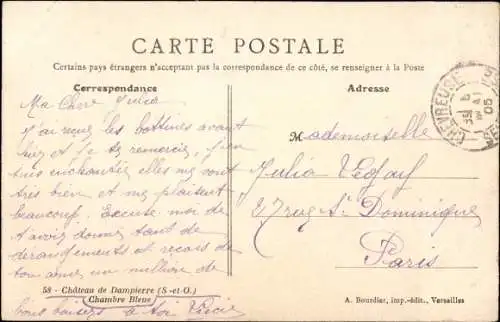 CARTE POSTALE
Certains pays étrangers n'acceptant pas la correspondance de ce côté, se renseigner à la Poste
Correspondance
Adresse
Ma Chère Julia
j'ai reçu les bottines avant
hier et je te remercie, j'en
suis enchantée elles me vont
très bien et me plaisent
beaucoup. Excuse moi de
t'avoir donné tant de
dérangements et reçois de
ton amie un million de
bons baisers à toi
Mademoiselle
Julia
27 rue St Dominique
Paris
CHEVREUSE
05
58 - Château de Dampierre (S.-et-O.)
Chambre Bleue
A. Bourdier, imp.-édit., Versailles